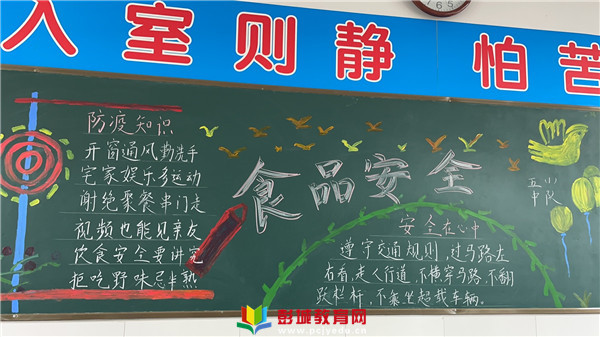 入室则静 怕苦
防疫知识
开窗通风勤洗手
宅家娱乐多运动
谢绝聚餐串门走
视频也能见亲友
饮食安全要讲究
拒吃野味忌半熟
食品安全
五小
中队
安全在心中
遵守交通规则,过马路左
右看,走人行道,不横穿马路,不翻
跃栏杆,不乘坐超载车辆。
彭城教育网
www.pcjyedu.cn